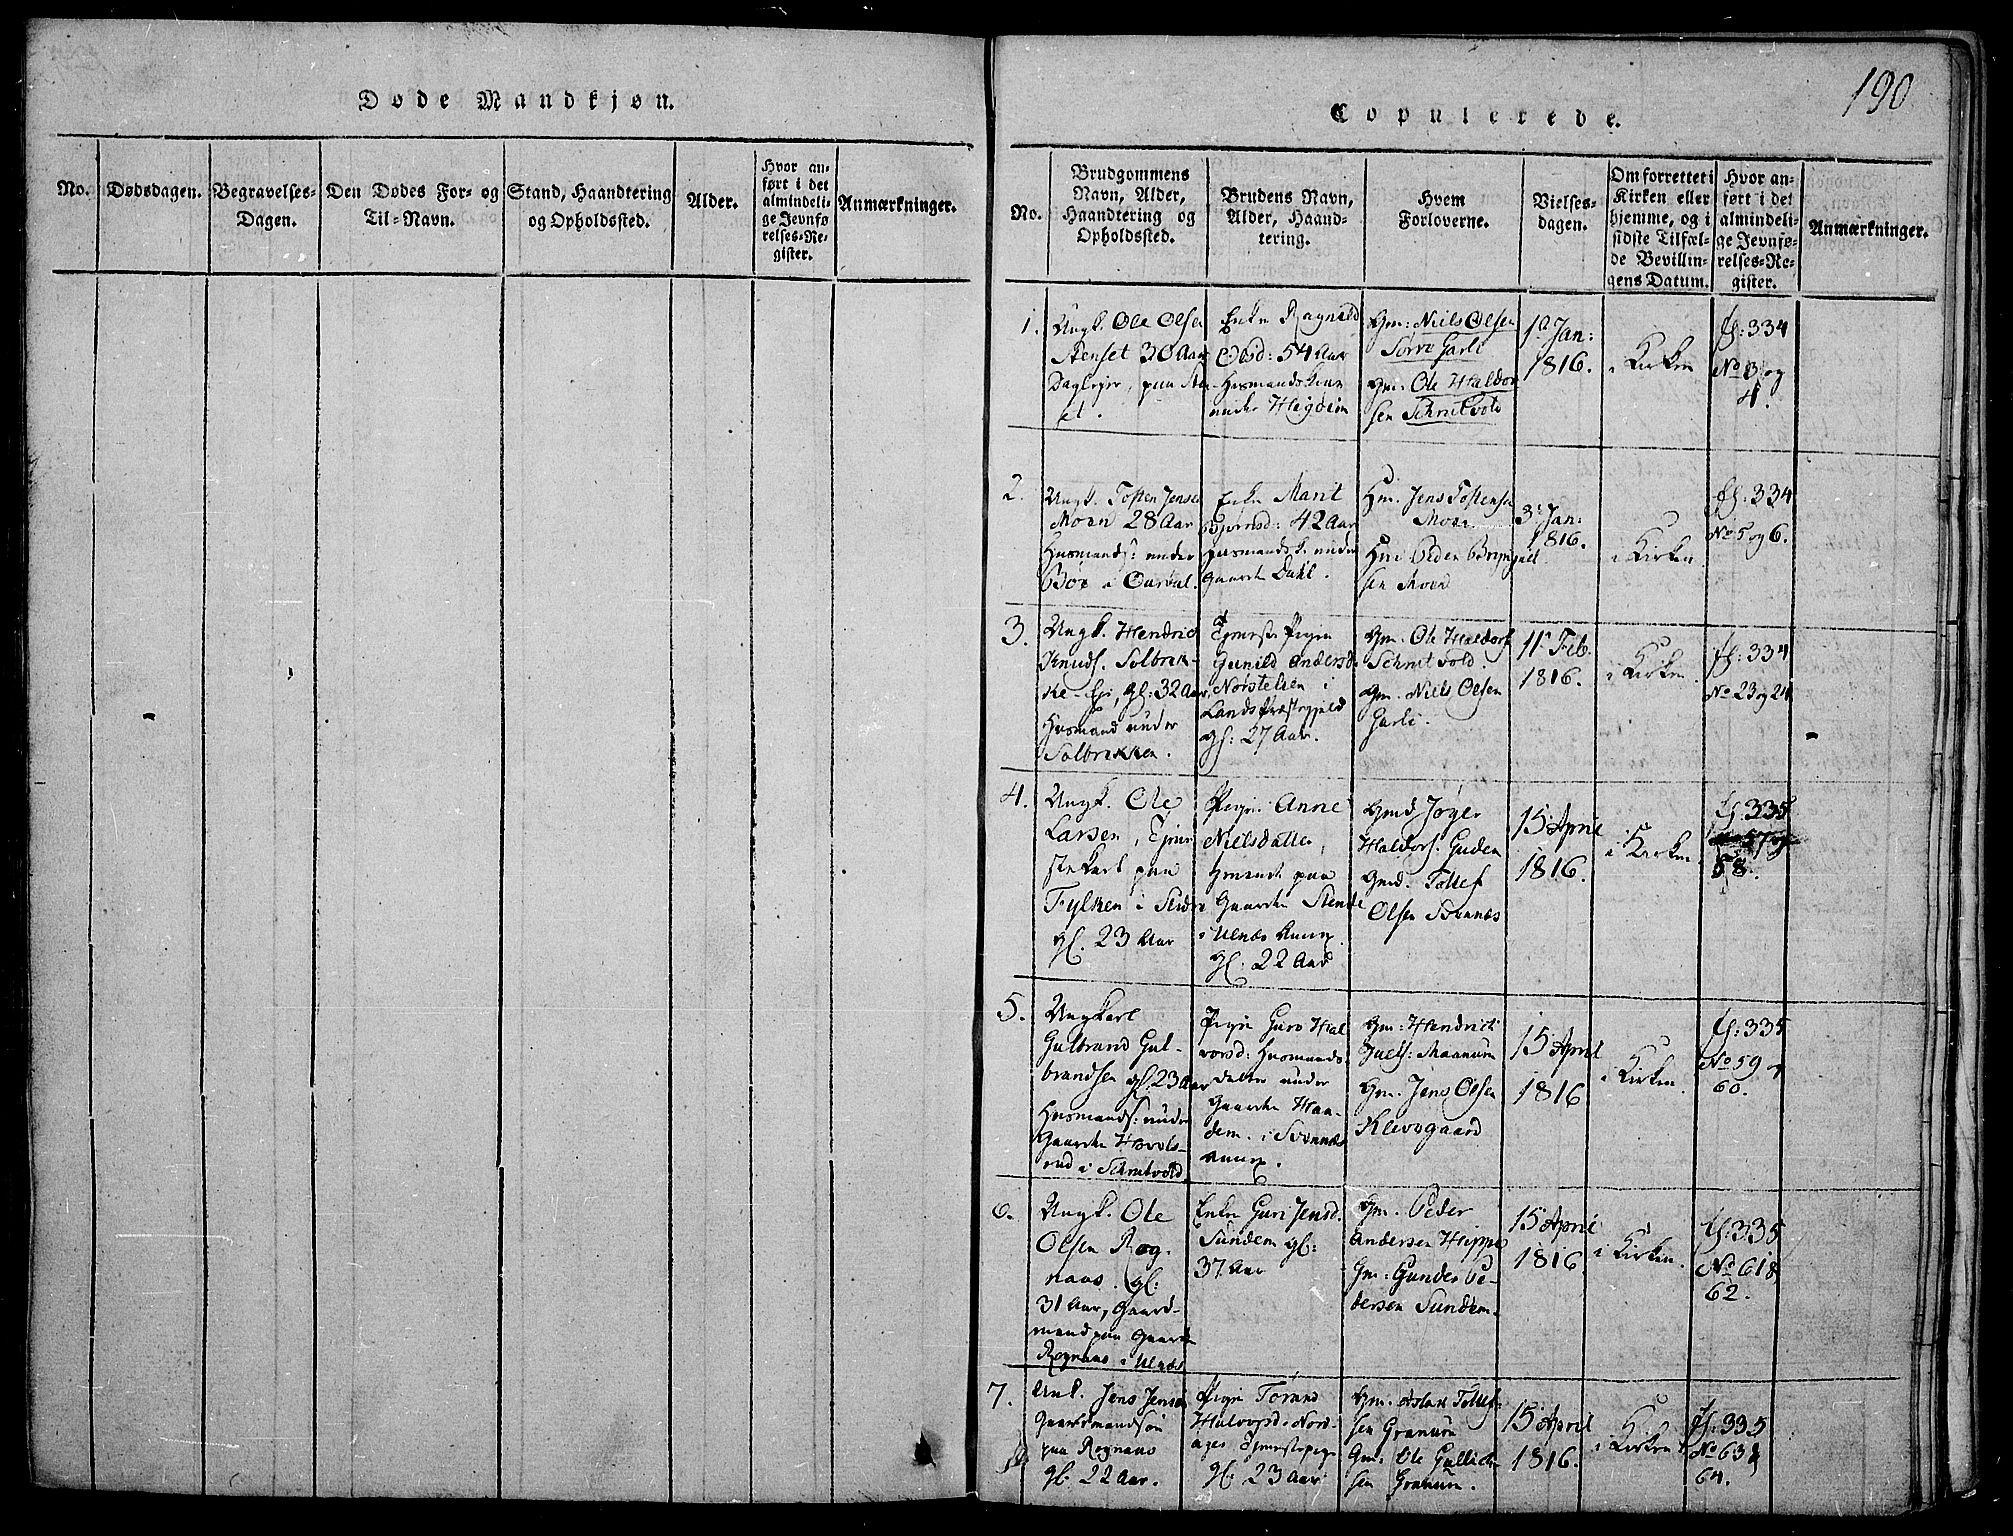 Døde Mandkjøn.
No.
Dødsdagen.
Begravelses-
Dagen.
Den Dødes For- og
Til-Navn.
Stand, Haandtering
og Opholdssted.
Alder.
Hvor an-
ført i det
almindeli-
ge Jevnfø
relses-Re-
gister.
Anmærkninger.
190
Copulerede.
No.
Brudgommens
Navn, Alder,
Haandtering og
Opholdssted.
Brudens Navn,
Alder, Haand-
tering.
Hvem
Forloverne.
Vielses-
dagen.
Om forrettet i
Kirken eller
hjemme, og i
sidste Tilfæl-
de Bevillin-
gens Datum.
Hvor an-
ført i det
almindeli-
ge Jevnfø-
relses-Re-
gister.
Anmærkninger.
1.
Ungk. Ole Olsen
Stenset 30 Aar
Enke Ragnild
Olsd: 54 Aar
Gm: Niels Olsen
Sørre Garli
Gm: Ole Haldor
sen Schrutvold
1. Jan:
1816.
i Kirken
fol: 334
No 3 og
4.
2.
Ungk. Tosten Jensen
Moen 28 Aar
Husmands: under
Enke Marit
Biørnsd: 42 Aar
Husmandsk. under
Gaarden Dahl.
Hm. Jens Tostensen
Moen
Hm: Peder
sen Moen
3. Jan:
1816.
i Kirken
fol: 334
No 5 og 6.
3.
Ungk. Hendric
Knuds. Solbræk-
ke Eje, gl: 32 Aar,
Husmand under
Solbrekken.
Tjeneste Pigen
Gunild Andersd.
Nørstelien i
Lands Præstegjeld
gl: 27 Aar.
Gm. Ole Haldors
Schrutvold
Gm. Niels Olsen
Garli.
11. Feb.
1816.
i Kirken
fol: 334
No 23 og 24
4.
Ungk. Ole
Larsen, Tjene-
stekarl paa
Fylken i Slidre
gl. 23 Aar
Pige Anne
Nielsdatter,
paa
Gaarden Stende
i Ulnæs Annex.
gl. 22 Aar
Gmd Jøger
Haldors. Guden
Gmd. Tollef
Olsen Svennæs
15 April
1816.
i Kirken
fol: 335
57 og
58.
5.
Ungkarl
Gulbrand Gul-
brandsen gl. 23 Aar
Husmands: under
Gaarden Hovels-
rud i Schrutvold
Pige Guro Hal
vorsd: Husmands-
datter under
Gaarden Haa-
dem i Svennæs
Annex.
Gm: Hendrich
Juels: Maanum
Gm. Jens Olsen
Klevgaard
15 April
1816
i Kirken.
fol: 335
No 59 og
60.
6.
Ungk. Ole
Olsen Rog-
naas. gl.
31 Aar, Gaard-
mand paa Gaarden
Rognaas i Ulnæs
Enke Guri Jensd.
Sundem gl:
37 Aar
Gm. Peder
Andersen Hippe
Gm: Gunder Pe-
dersen Sundem.
15 April
1816
i Kirken.
fol: 335
No 61 &
62.
7.
Unk. Jens Jensen
Gaardmandssøn
paa Rognaas
gl. 22 Aar.
Pige Torand
Halvorsd. Nord-
ages Tjenestepige
gl. 23 Aar
Gm: Aslak Tollef-
sen Granum
Gm: Ole Gullick
sen Granum.
15 April
1816.
i Kirken
fol: 335
No 63 &
64.